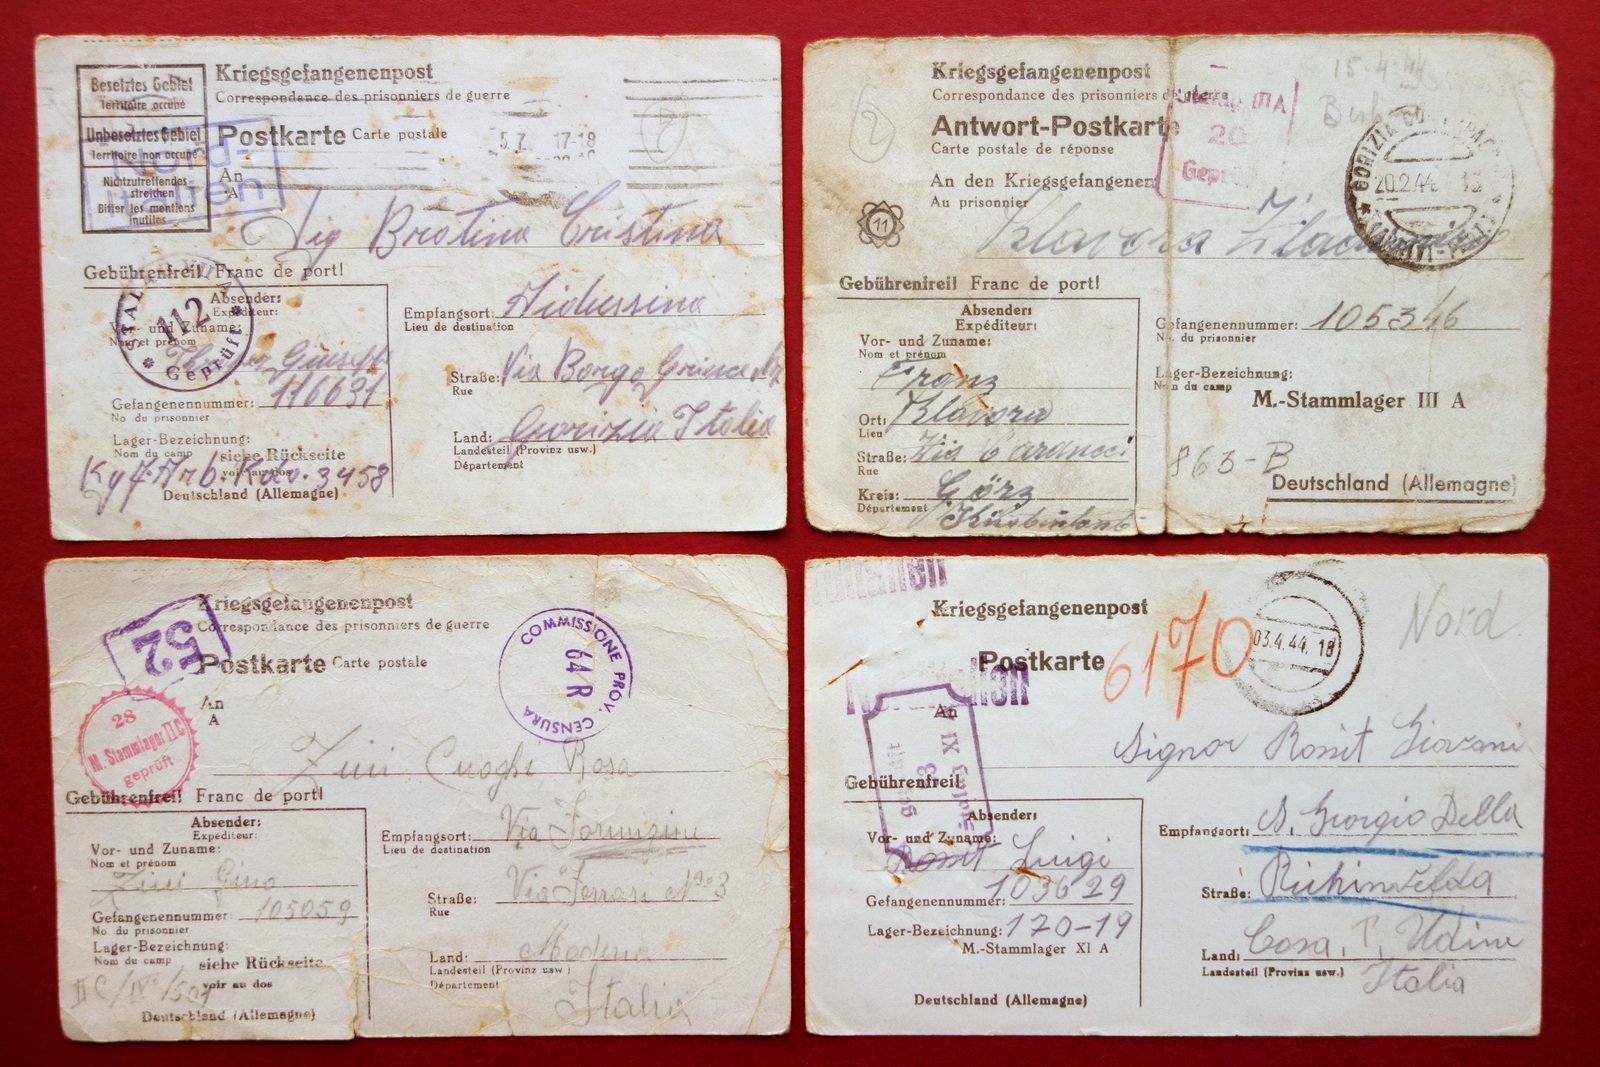 Besetztes Gebiet
Territoire occupé
Unbesetztes Gebiet
Territoire non occupé
Nichtzutreffendes
streichen
Biffer les mentions
inutiles
Kriegsgefangenenpost
Correspondance des prisonniers de guerre
Postkarte Carte postale
5.7. 17-18
Nord-
italien
An
A
Sig Bratina Cristina
Gebührenfrei! Franc de port!
Absender:
Expéditeur:
Vor- und Zuname:
Nom et prénom
112
Geprüft
116631
Gefangenennummer:
No du prisonnier
Lager-Bezeichnung:
Nom du camp
siehe Rückseite
voir au dos
3458
Deutschland (Allemagne)
Empfangsort: Aidussina
Lieu de destination
Straße: Via Borgo
Rue
Land: Gorizia Italia
Landesteil (Provinz usw.)
Département
Kriegsgefangenenpost
Correspondance des prisonniers de guerre
Antwort-Postkarte
Carte postale de réponse
An den Kriegsgefangenen
Au prisonnier
15.4.44
Stalag III A
20
Geprüft
GORIZIA
20.2.44. 13
2
11
Klavora
Gebührenfrei! Franc de port!
Absender:
Expéditeur:
Vor- und Zuname:
Nom et prénom
Franz
Klavora
Ort:
Lieu
Straße: Via Carducci
Rue
Kreis: Görz
Département
Gefangenennummer: 105346
No. du prisonnier
Lager-Bezeichnung:
Nom du camp
M.-Stammlager III A
863-B
Deutschland (Allemagne)
Kriegsgefangenenpost
Correspondance des prisonniers de guerre
Postkarte Carte postale
52
COMMISSIONE PROV. CENSURA
64 R
28
M. Stammlager II C
geprüft
An
A
Zini Cuoghi Rosa
Gebührenfrei! Franc de port!
Absender:
Expéditeur:
Vor- und Zuname:
Nom et prénom
Zini Gino
Gefangenennummer: 105059
No. du prisonnier
Lager-Bezeichnung:
Nom du camp
siehe Rückseite
voir au dos
Deutschland (Allemagne)
Empfangsort: Via
Lieu de destination
Straße: Via Ferrari N° 3
Rue
Land: Modena
Landesteil (Provinz usw)
Département
Italia
Kriegsgefangenenpost
Postkarte
6170
03.4.44. 18
Nord
Norditalien
An
Signor Rosit Giovani
Gebührenfrei!
Absender:
Vor- und Zuname:
Rosit Luigi
Gefangenennummer: 103629
Lager-Bezeichnung: 170-19
M.-Stammlager XI A
Deutschland (Allemagne)
Empfangsort: S. Giorgio Della
Straße: Richinvelda
Land: Cosa, P. Udine
Landesteil (Provinz usw.)
Italia